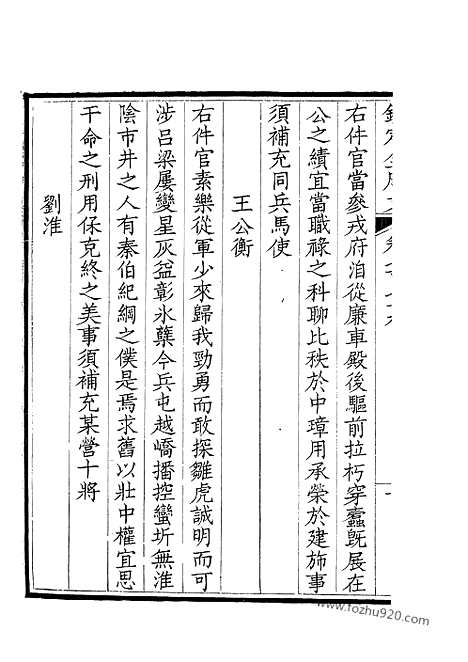 右件官當參戎府洎從廉車殿後驅前拉朽穿蠹旣展在
公之績宜當職祿之科聊比秩於中璋用承榮於建斾事
須補充同兵馬使
王公衡
右件官素樂從軍少來歸我勁勇而敢探雛虎誠明而可
涉呂梁屢變星灰益彰氷蘖今兵屯越嶠播控蠻圻無淮
陰市井之人有秦伯紀綱之僕是焉求舊以壯中權宜思
干命之刑用保克終之美事須補充某營十將
劉淮
www.fozhu920.com